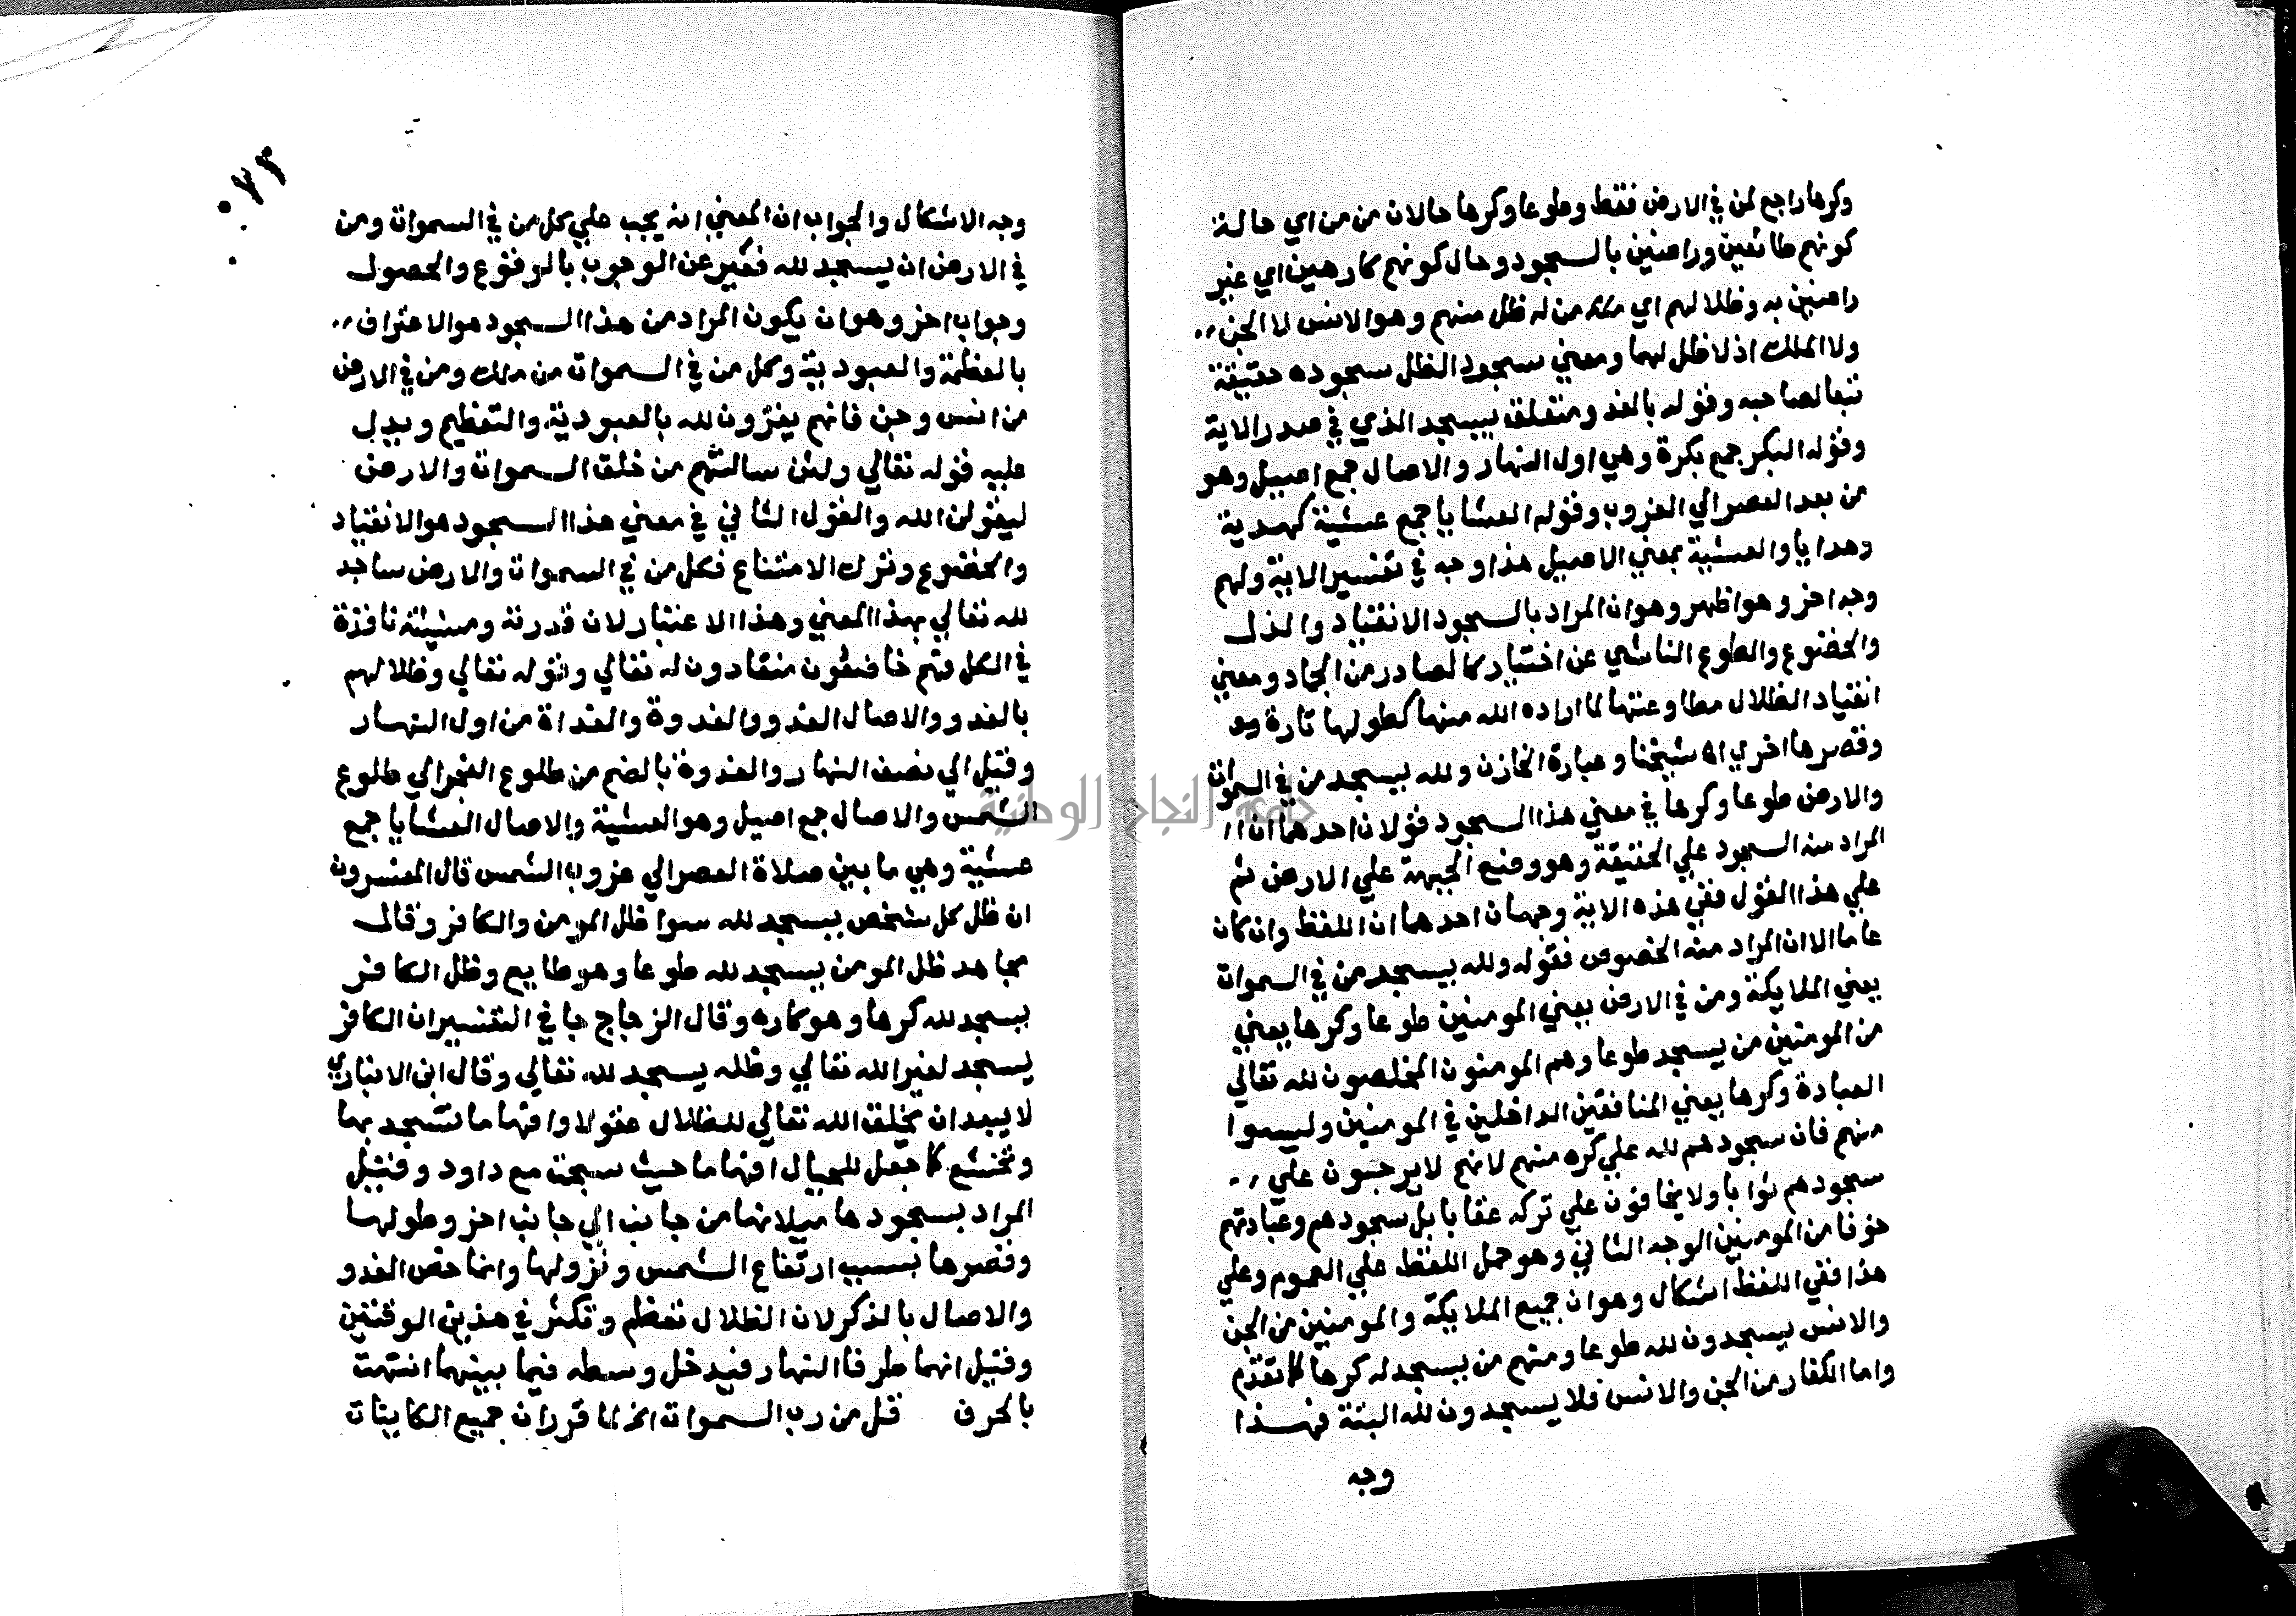 وكرها راجع لمن في الارض فقط وطوعا وكرها حالان من من اي حالة
كونهم طائعين وراضين بالسجود وحال كونهم كارهين اي غير
راضين به وظلالهم اي من له ظل منهم وهو الانس لا الجن
ولا الملك اذ لا ظل لهما ومعني سجود الظل سجوده حقيقة
تبعا لصاحبه وقوله بالغدو متعلق بيسجد الذي في صدر الاية
وقوله البكر جمع بكرة وهي اول النهار والاصال جمع اصيل وهو
من بعد العصر الي الغروب وقوله العشايا جمع عشية كهدية
وهدايا والعشية بمعني الاصيل هذا وجه في تفسير الاية ولهم
وجه اخر وهو اظهر وهو ان المراد بالسجود الانقياد والذل
والخضوع والطوع الناشي عن اختيار كالصادر من الجماد ومعني
انقياد الظلال مطاوعتها لما اراده الله منها كطولها تارة
وقصرها اخري اه شيخنا وعبارة الخازن ولله يسجد من في السموات
والارض طوعا وكرها في معني هذا السجود قولان احدهما ان
المراد منه السجود علي الحقيقة وهو وضع الجبهة علي الارض ثم
علي هذا القول ففي هذه الاية وجهان احدهما ان اللفظ وان كان
عاما الا ان المراد منه الخصوص فقوله ولله يسجد من في السموات
يعني الملايكة ومن في الارض يعني المومنين طوعا وكرها يعني
من المومنين من يسجد طوعا وهم المومنون المخلصون لله تعالي
العبادة وكرها يعني المنافقين الداخلين في المومنين وليسوا
منهم فان سجودهم لله علي كره منهم لانهم لا يرجون علي
سجودهم ثوابا ولا يخافون علي تركه عقابا بل سجودهم وعبادتهم
خوفا من المومنين الوجه الثاني وهو حمل اللفظ علي العموم وعلي
هذا ففي اللفظ اشكال وهو ان جميع الملايكة والمومنين من الجن
والانس يسجدون لله طوعا ومنهم من يسجد له كرها كما تقدم
واما الكفار من الجن والانس فلا يسجدون لله البتة فهذا
وجه
٠٧٣
وجه الاشكال والجواب ان المعني انه يجب علي كل من في السموات ومن
في الارض ان يسجد لله فعبر عن الوجوب بالوقوع والحصول
وجواب اخر وهو ان يكون المراد من هذا السجود هو الاعتراف
بالعظمة والعبودية وكل من في السموات من ملك ومن في الارض
من انس وجن فانهم يقرون لله بالعبودية والتعظيم ويدل
عليه قوله تعالي ولئن سالتهم من خلق السموات والارض
ليقولن الله والقول الثاني في معني هذا السجود هو الانقياد
والخضوع وترك الامتناع فكل من في السموات والارض ساجد
لله تعالي بهذا المعني وهذا الاعتبار لان قدرته ومشيئته نافذة
في الكل فهم خاضعون منقادون له تعالي وقوله تعالي وظلالهم
بالغدو والاصال الغدو والغدوة والغداة من اول النهار
وقيل الي نصف النهار والغدوة بالضم من طلوع الفجر الي طلوع
الشمس والاصال جمع اصيل وهو العشية والاصال العشايا جمع
عشية وهي ما بين صلاة العصر الي غروب الشمس قال المفسرون
ان ظل كل شخص يسجد لله سوا ظل المومن والكافر وقال
مجاهد ظل المومن يسجد لله طوعا وهو طايع وظل الكافر
يسجد لله كرها وهو كاره وقال الزجاج جا في التفسير ان الكافر
يسجد لغير الله تعالي وظله يسجد لله تعالي وقال ابن الانباري
لا يبعد ان يخلق الله تعالي للظلال عقولا وافهاما تسجد بها
وتخشع كما جعل للجبال افهاما حيث سبحت مع داود وقيل
المراد بسجودها ميلانها من جانب الي جانب اخر وطولها
وقصرها بسبب ارتفاع الشمس ونزولها وانما خص الغدو
والاصال بالذكر لان الظلال تعظم وتكثر في هذين الوقتين
وقيل انهما طرفا النهار فيدخل وسطه فيما بينهما انتهت
بالحرف قل من رب السموات الخ لما قرر ان جميع الكاينات
جامعة النجاح الوطنية